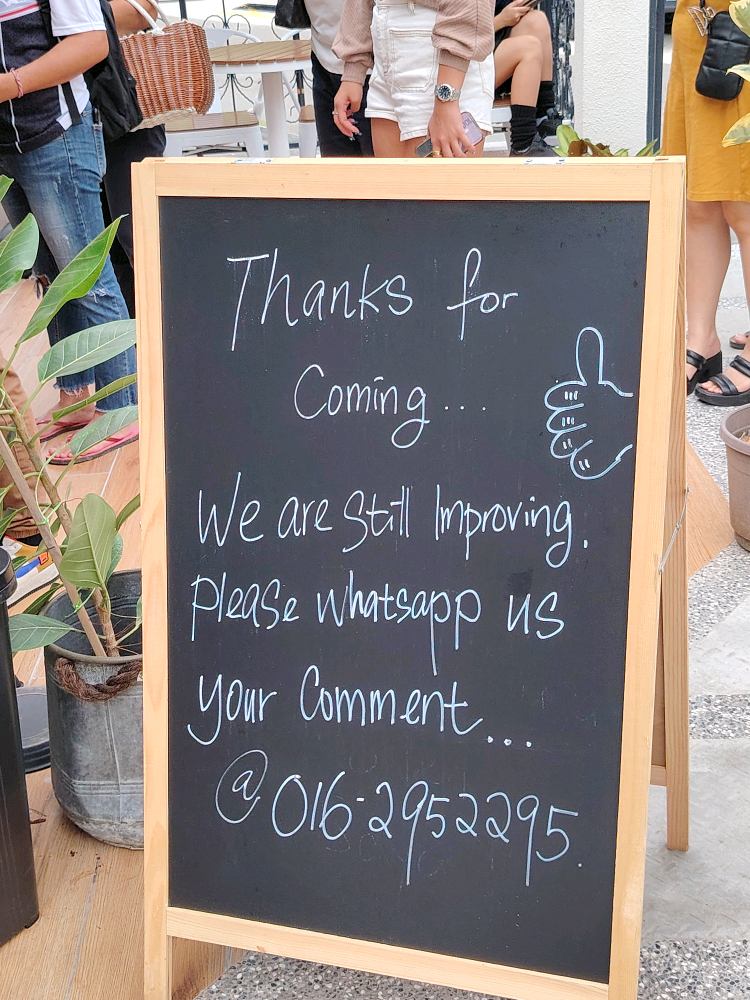 Thanks for
Coming...
We are Still Improving.
Please whatsapp us
your Comment...
@016-2952295.